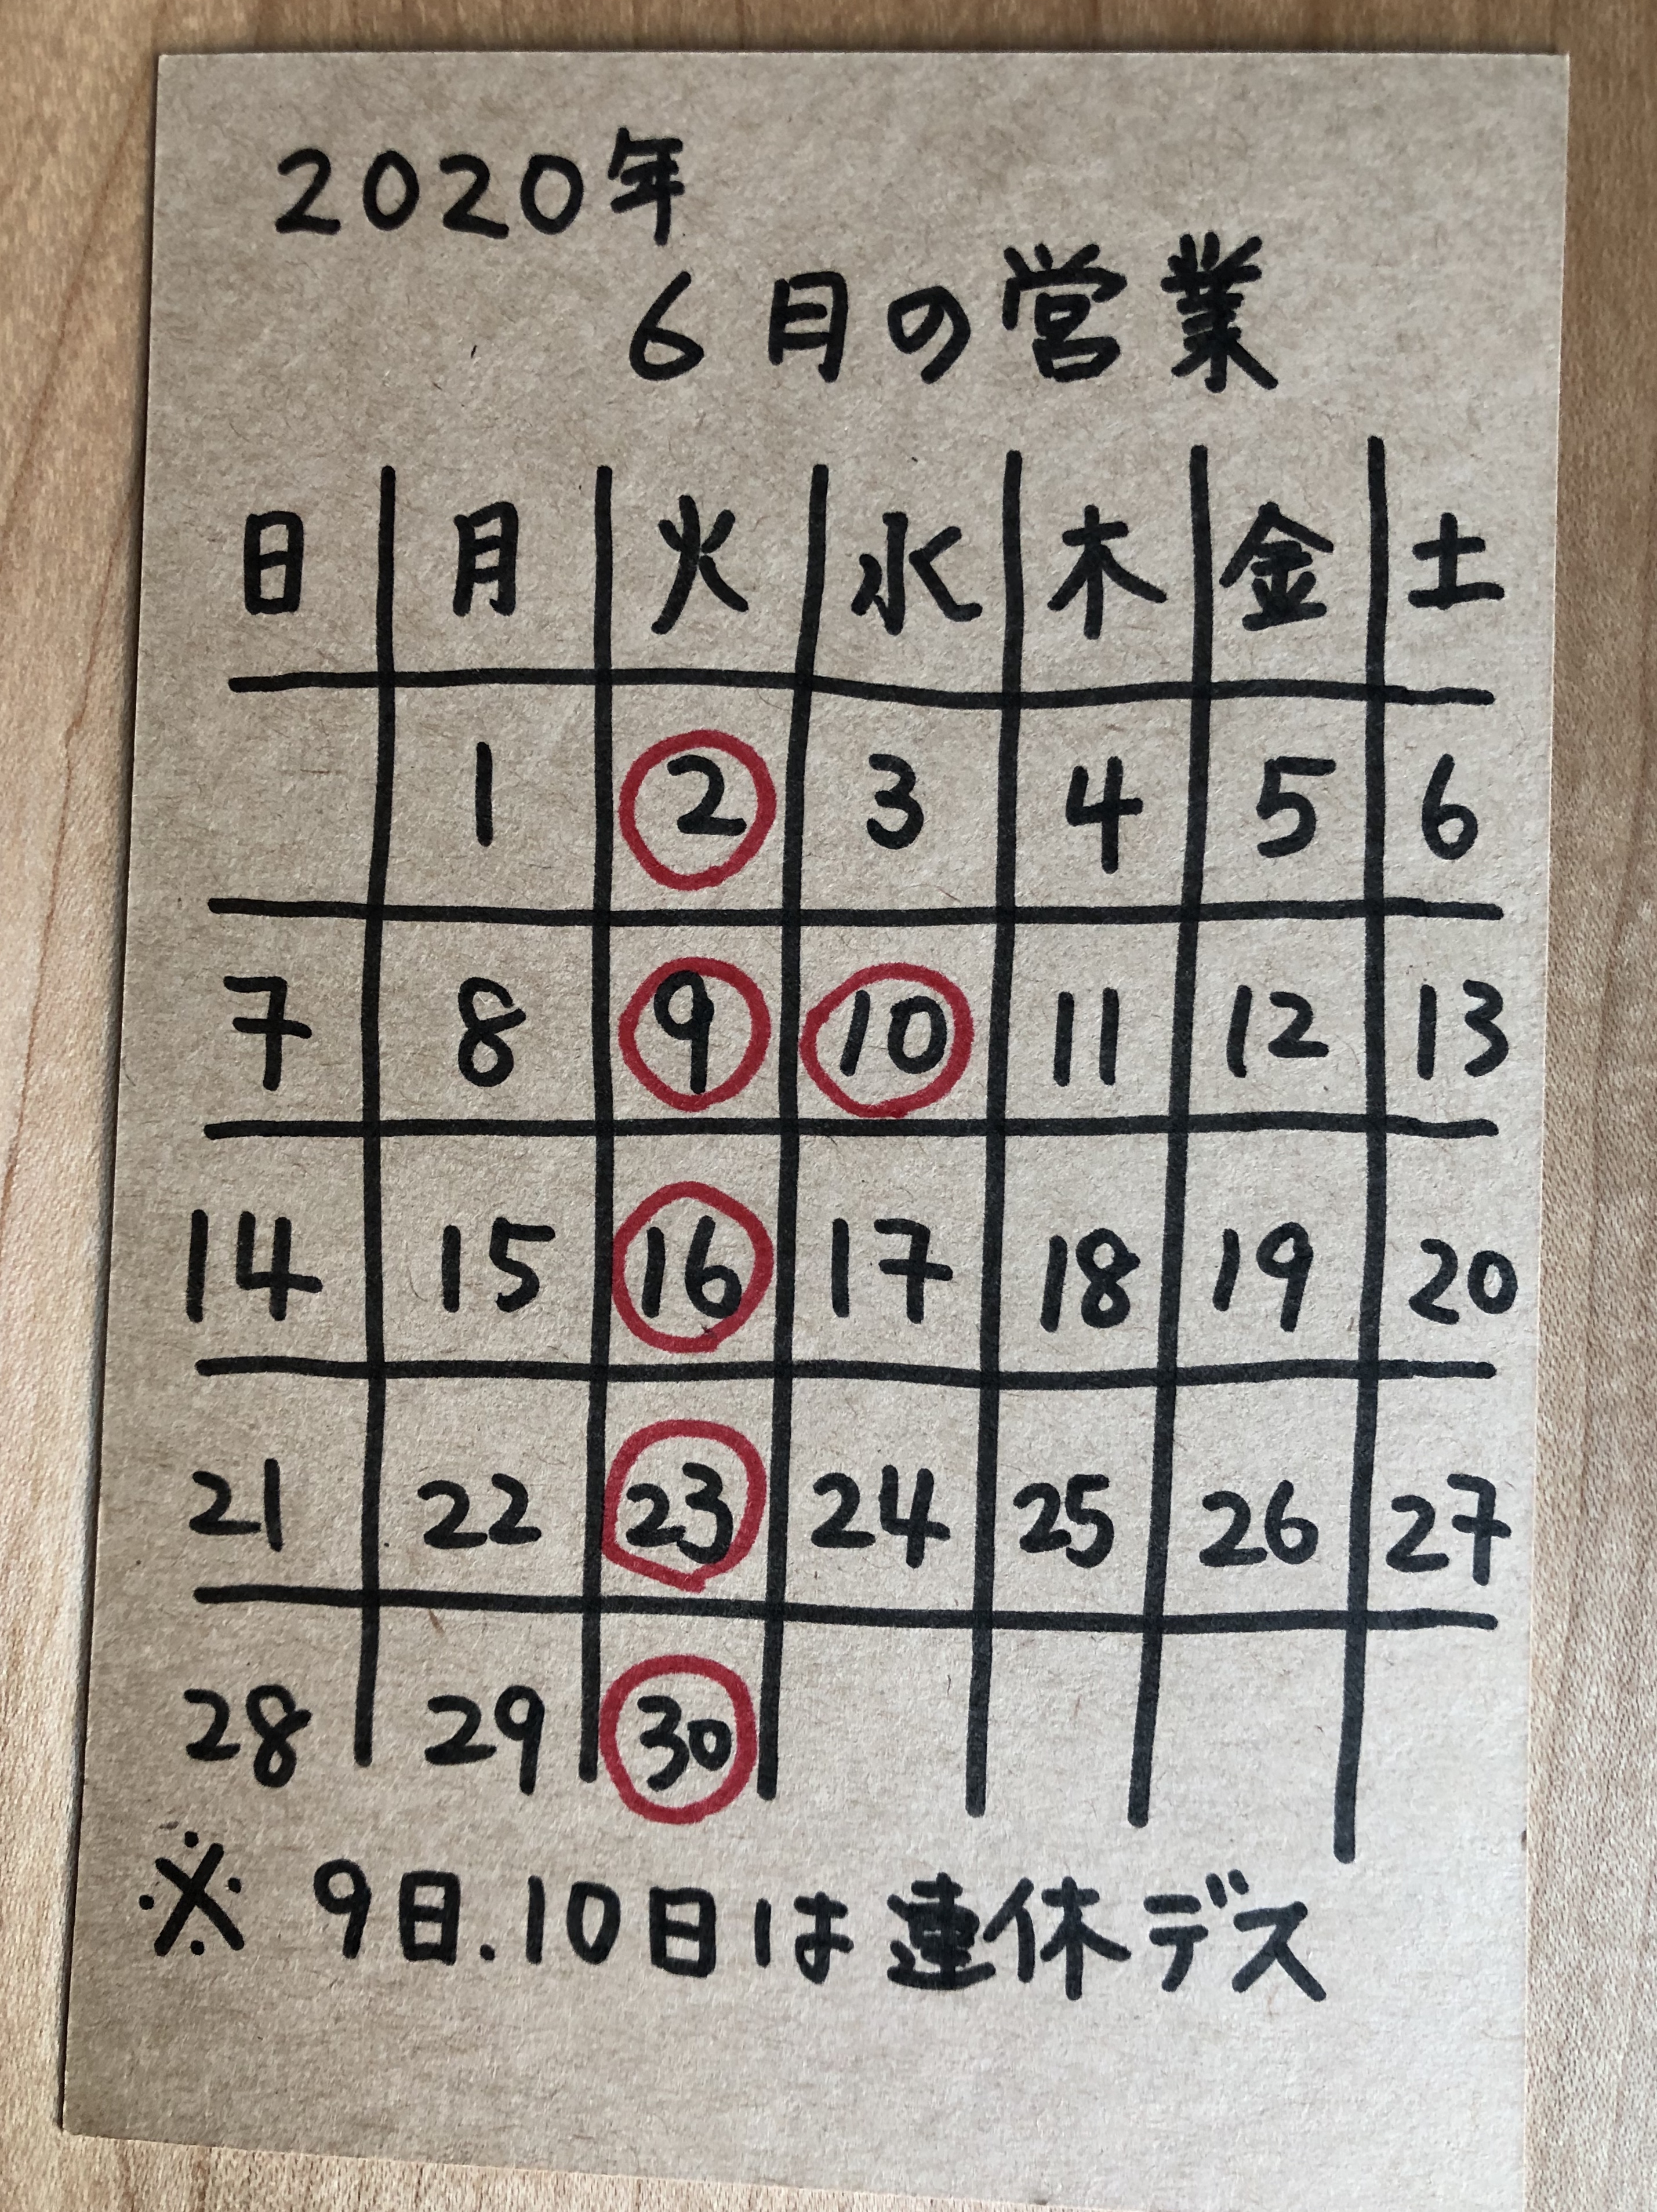 2020年
6月の営業
日 月 火 水 木 金 土
1 2 3 4 5 6
7 8 9 10 11 12 13
14 15 16 17 18 19 20
21 22 23 24 25 26 27
28 29 30
※ 9日.10日は連休デス